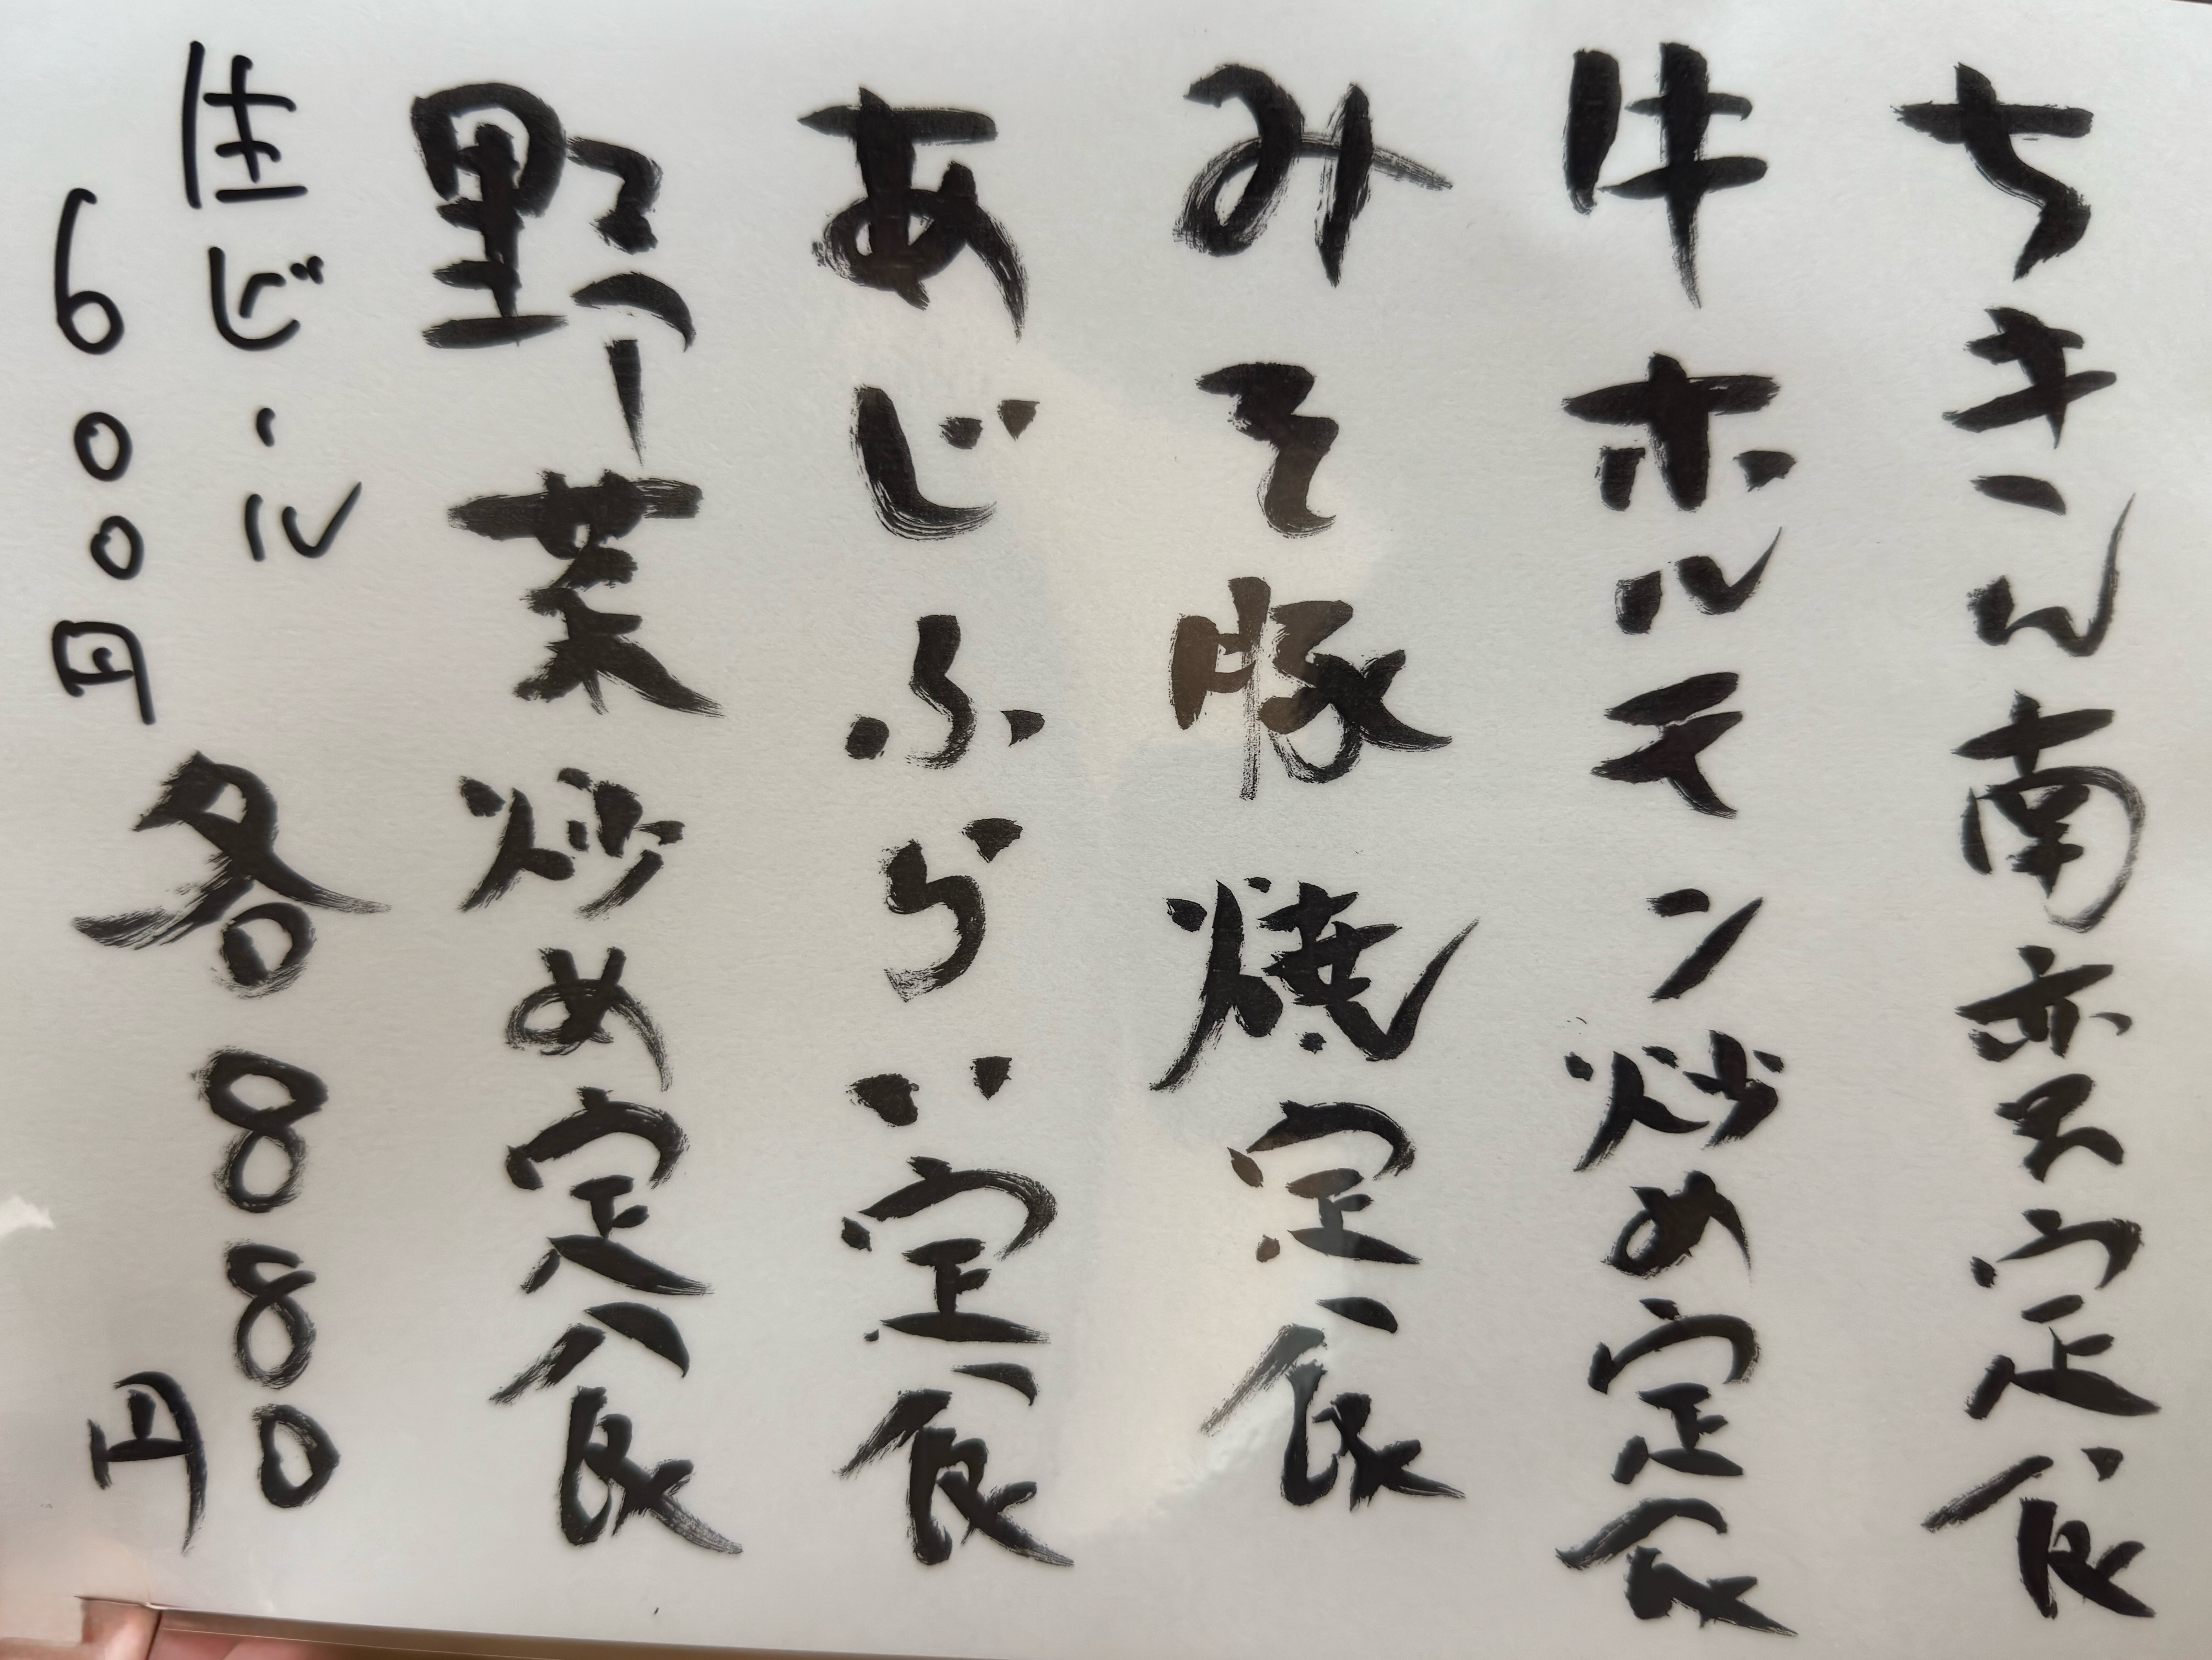 ちきん南蛮定食
牛ホルモン炒め定食
みそ豚焼定食
あじふらい定食
野菜炒め定食
生ビール
600円
各880円